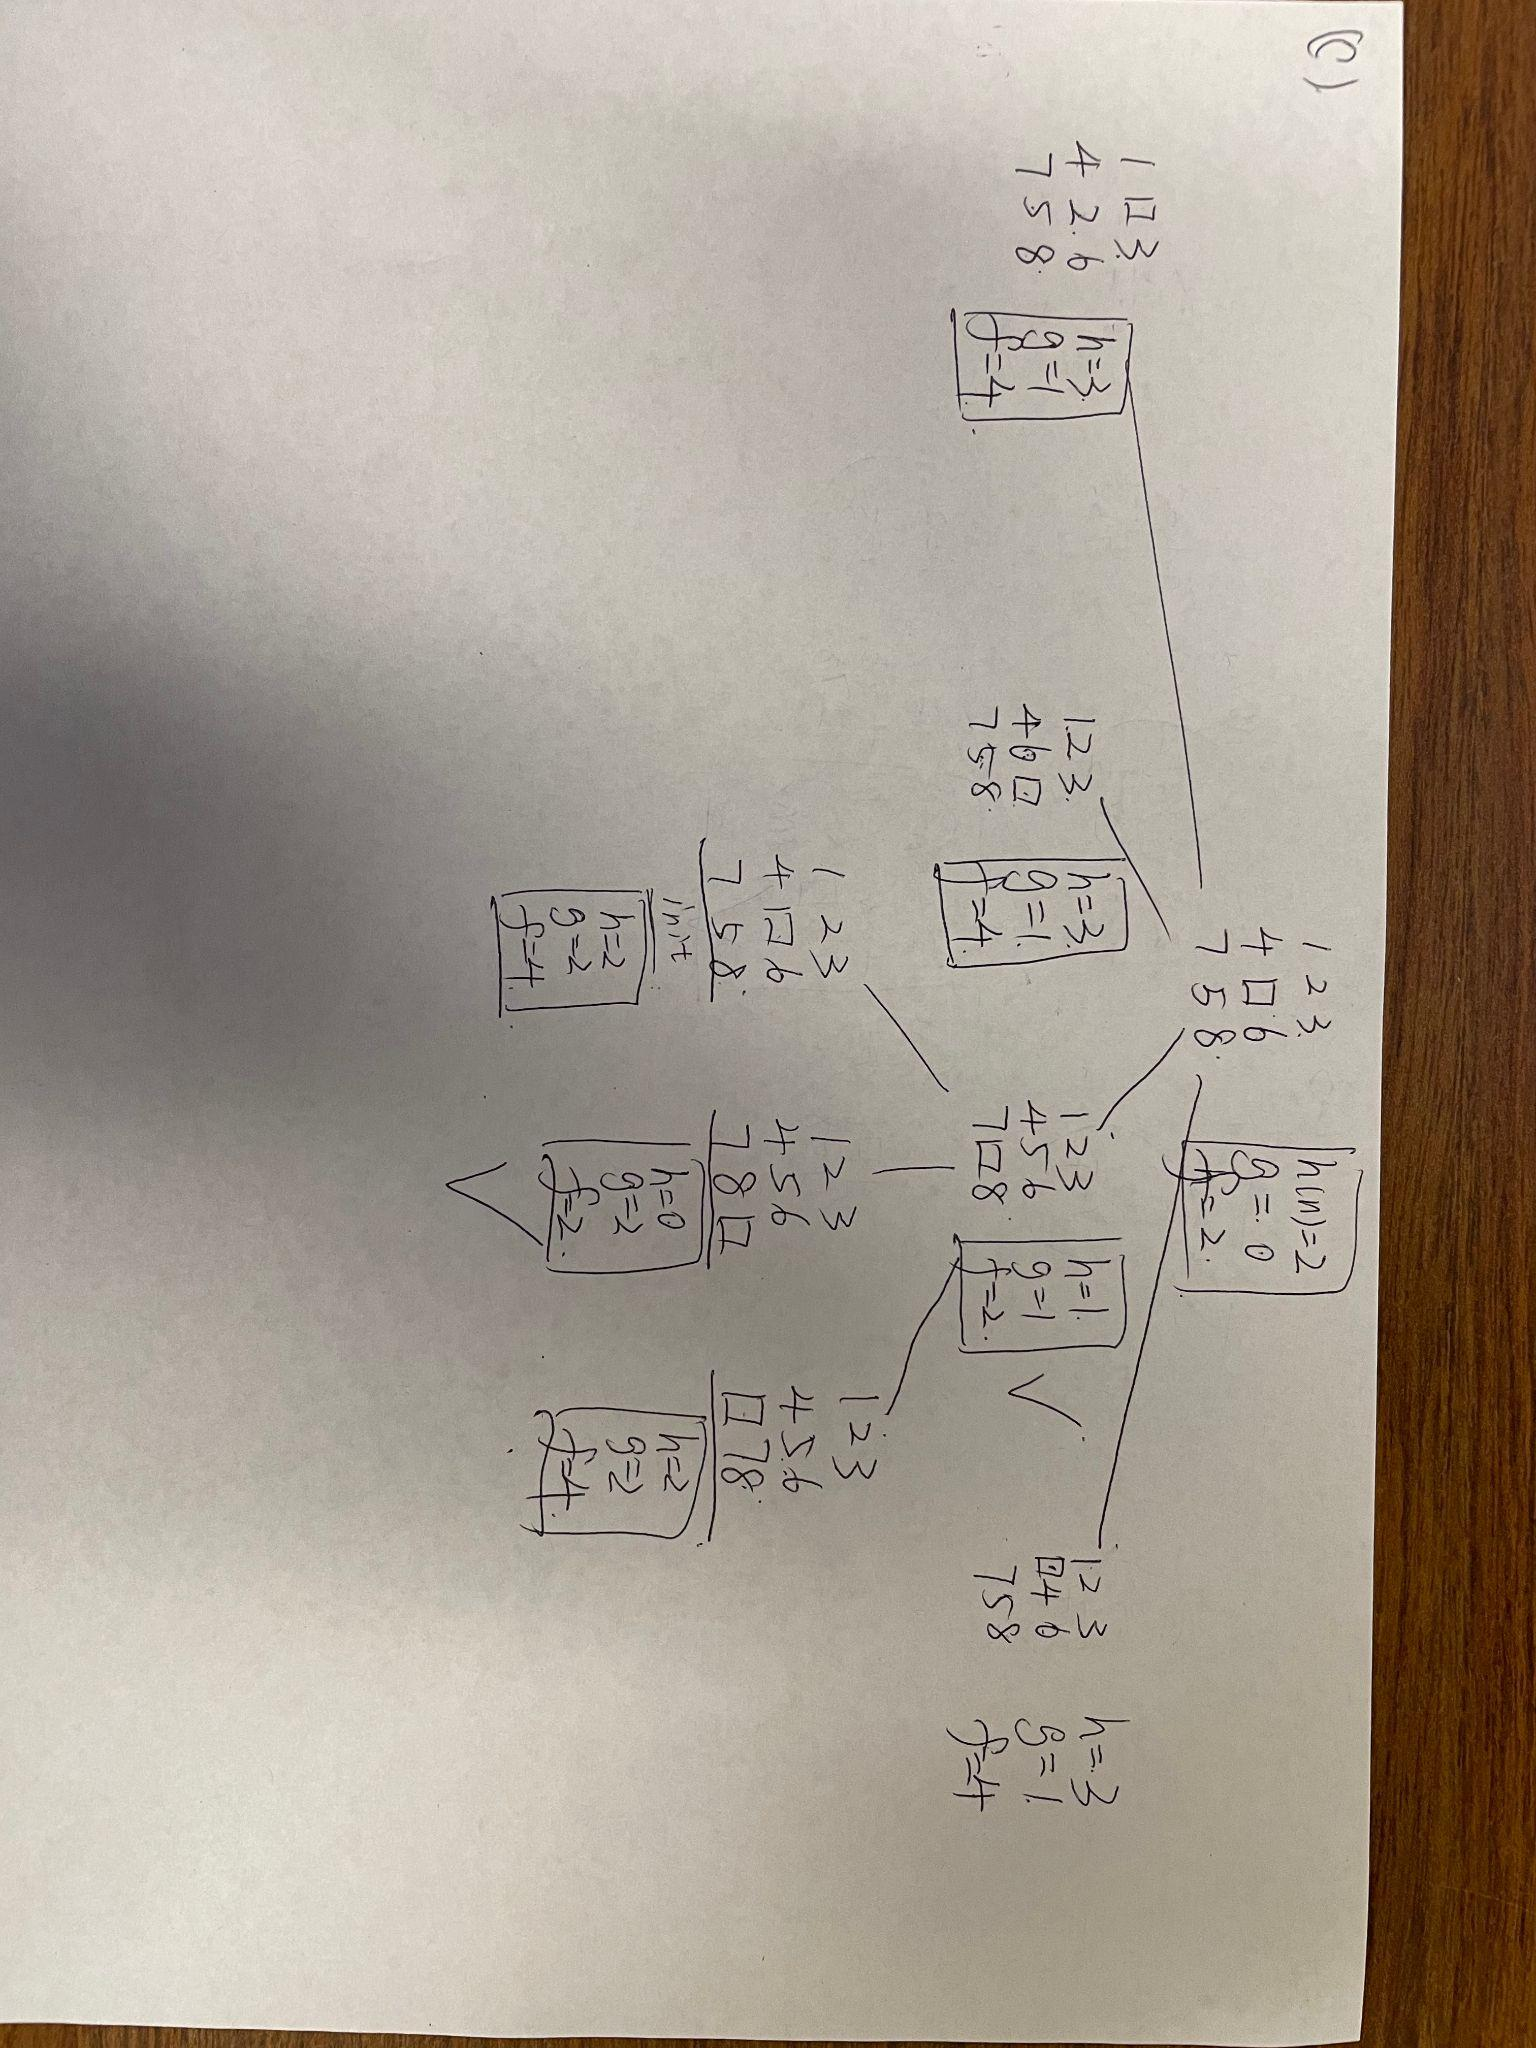 (C)
1 2 3
4 □ 6
7 5 8
h(n)=2
g=0
f=2
1 □ 3
4 2 6
7 5 8
h=3
g=1
f=4
1 2 3
4 6 □
7 5 8
h=3
g=1
f=4
1 2 3
4 5 6
7 □ 8
h=1
g=1
f=2
1 2 3
□ 4 6
7 5 8
h=3
g=1
f=4
1 2 3
4 □ 6
7 5 8
init
h=2
g=2
f=4
1 2 3
4 5 6
7 8 □
h=0
g=2
f=2
1 2 3
4 5 6
□ 7 8
h=2
g=2
f=4